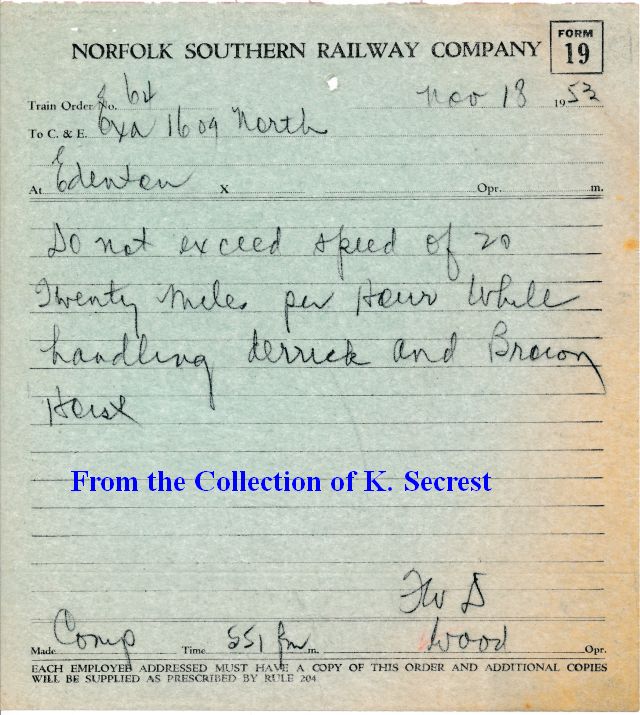 FORM
19
NORFOLK SOUTHERN RAILWAY COMPANY
Train Order No. 64
Nov 18 1953
To C. & E. Exa 1609 North
At Edenton X Opr. m.
Do not exceed speed of 20
Twenty miles per Hour While
handling derrick and Brown
Hoist
From the Collection of K. Secrest
Made Comp Time 551 Pm m. Wood Opr.
EACH EMPLOYEE ADDRESSED MUST HAVE A COPY OF THIS ORDER AND ADDITIONAL COPIES
WILL BE SUPPLIED AS PRESCRIBED BY RULE 204